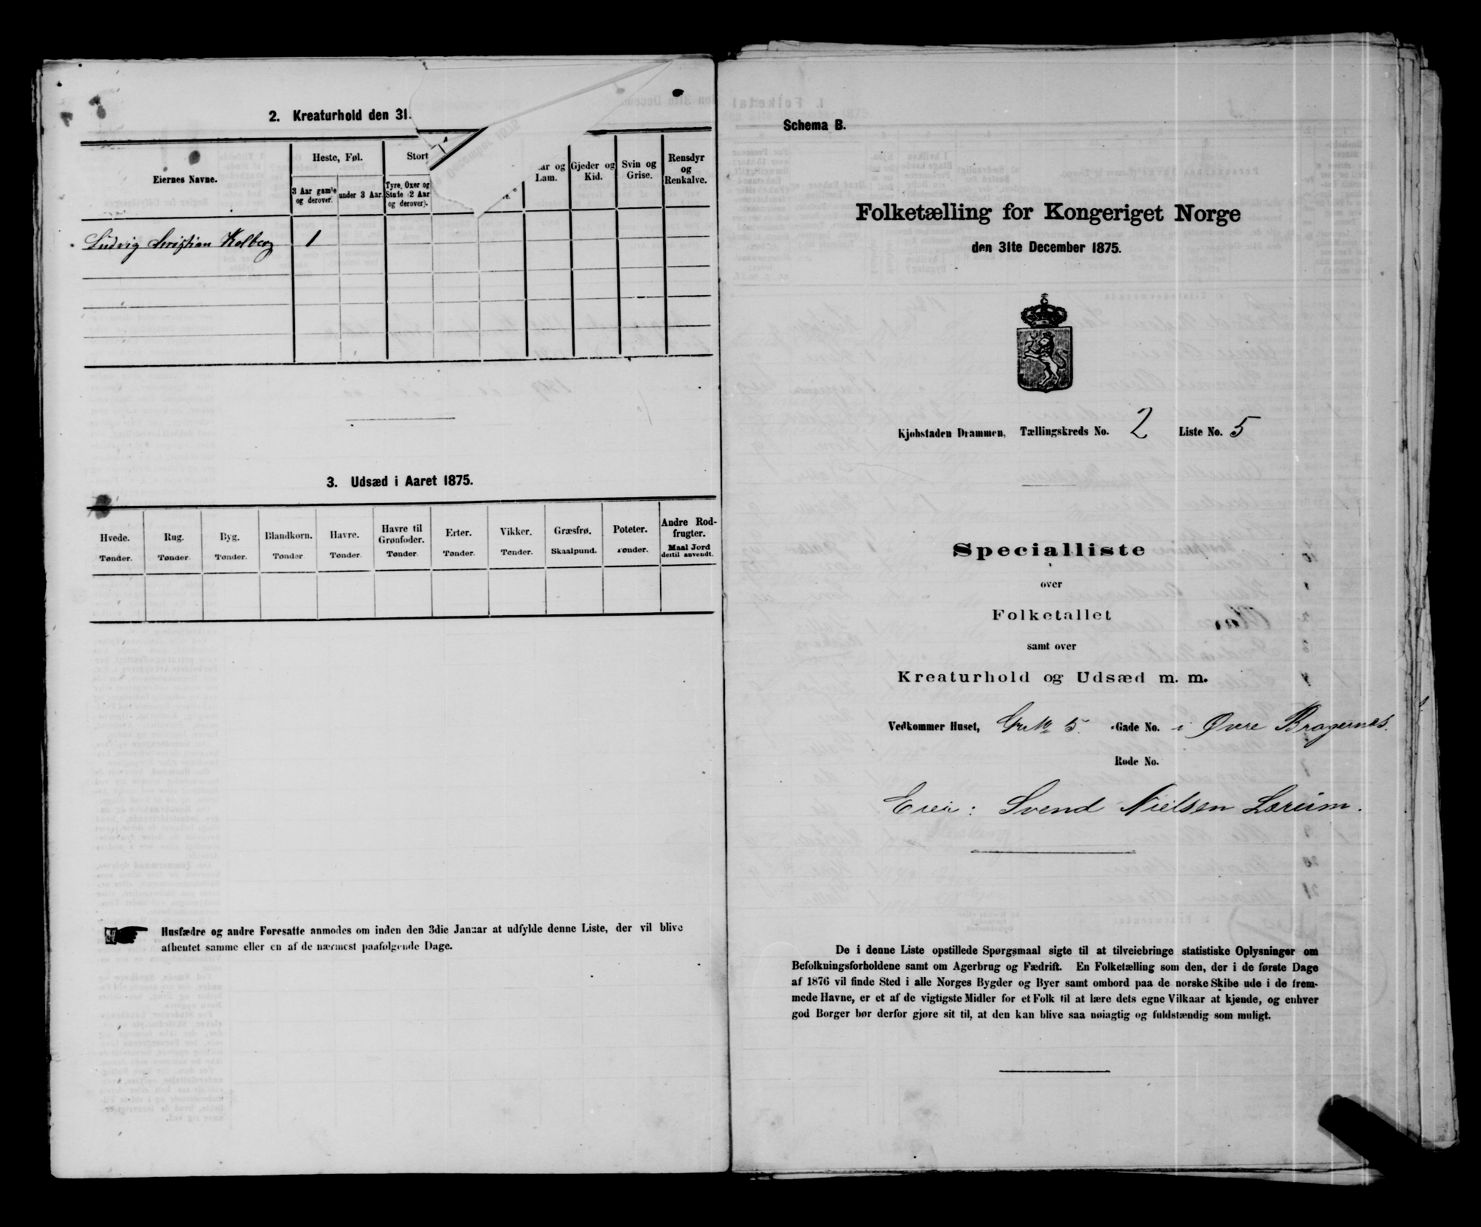 2. Kreaturhold den 31.
Eiernes Navne.
Heste, Føl.
Stort
3 Aar gamle og derover.
under 3 Aar.
Tyre, Oxer og Stude 2 Aar og derover).
ar og Lam.
Gjeder og Kid.
Svin og Grise.
Rensdyr og Renkalve.
Ludvig Kristian Kolberg 1
3. Udsæd i Aaret 1875.
Hvede. Rug. Byg. Blandkorn. Havre. Havre til Grønfoder. Erter. Vikker. Græsfrø. Poteter. Andre Rodfrugter.
Tønder. Tønder. Tønder. Tønder. Tønder. Tønder. Tønder. Tønder. Skaalpund. Tønder. Maal Jord dertil anvendt.
Husfædre og andre Foresatte anmodes om inden den 3die Januar at udfylde denne Liste, der vil blive
afhentet samme eller en af de nærmest paafølgende Dage.
Schema B.
Folketælling for Kongeriget Norge
den 31te December 1875.
Kjøbstaden Drammen, Tællingskreds No. 2 Liste No. 5
Specialliste
over
Folketallet
samt over
Kreaturhold og Udsæd m. m.
Vedkommer Huset, Gr. No 5. Gade No. i Øvre Bragernes.
Rode No.
Eier: Svend Nielsen Læreim.
De i denne Liste opstillede Spørgsmaal sigte til at tilveiebringe statistiske Oplysninger om
Befolkningsforholdene samt om Agerbrug og Fædrift. En Folketælling som den, der i de første Dage
af 1876 vil finde Sted i alle Norges Bygder og Byer samt ombord paa de norske Skibe ude i de frem-
mede Havne, er et af de vigtigste Midler for et Folk til at lære dets egne Vilkaar at kjende, og enhver
god Borger bør derfor gjøre sit til, at den kan blive saa nøiagtig og fuldstændig som muligt.